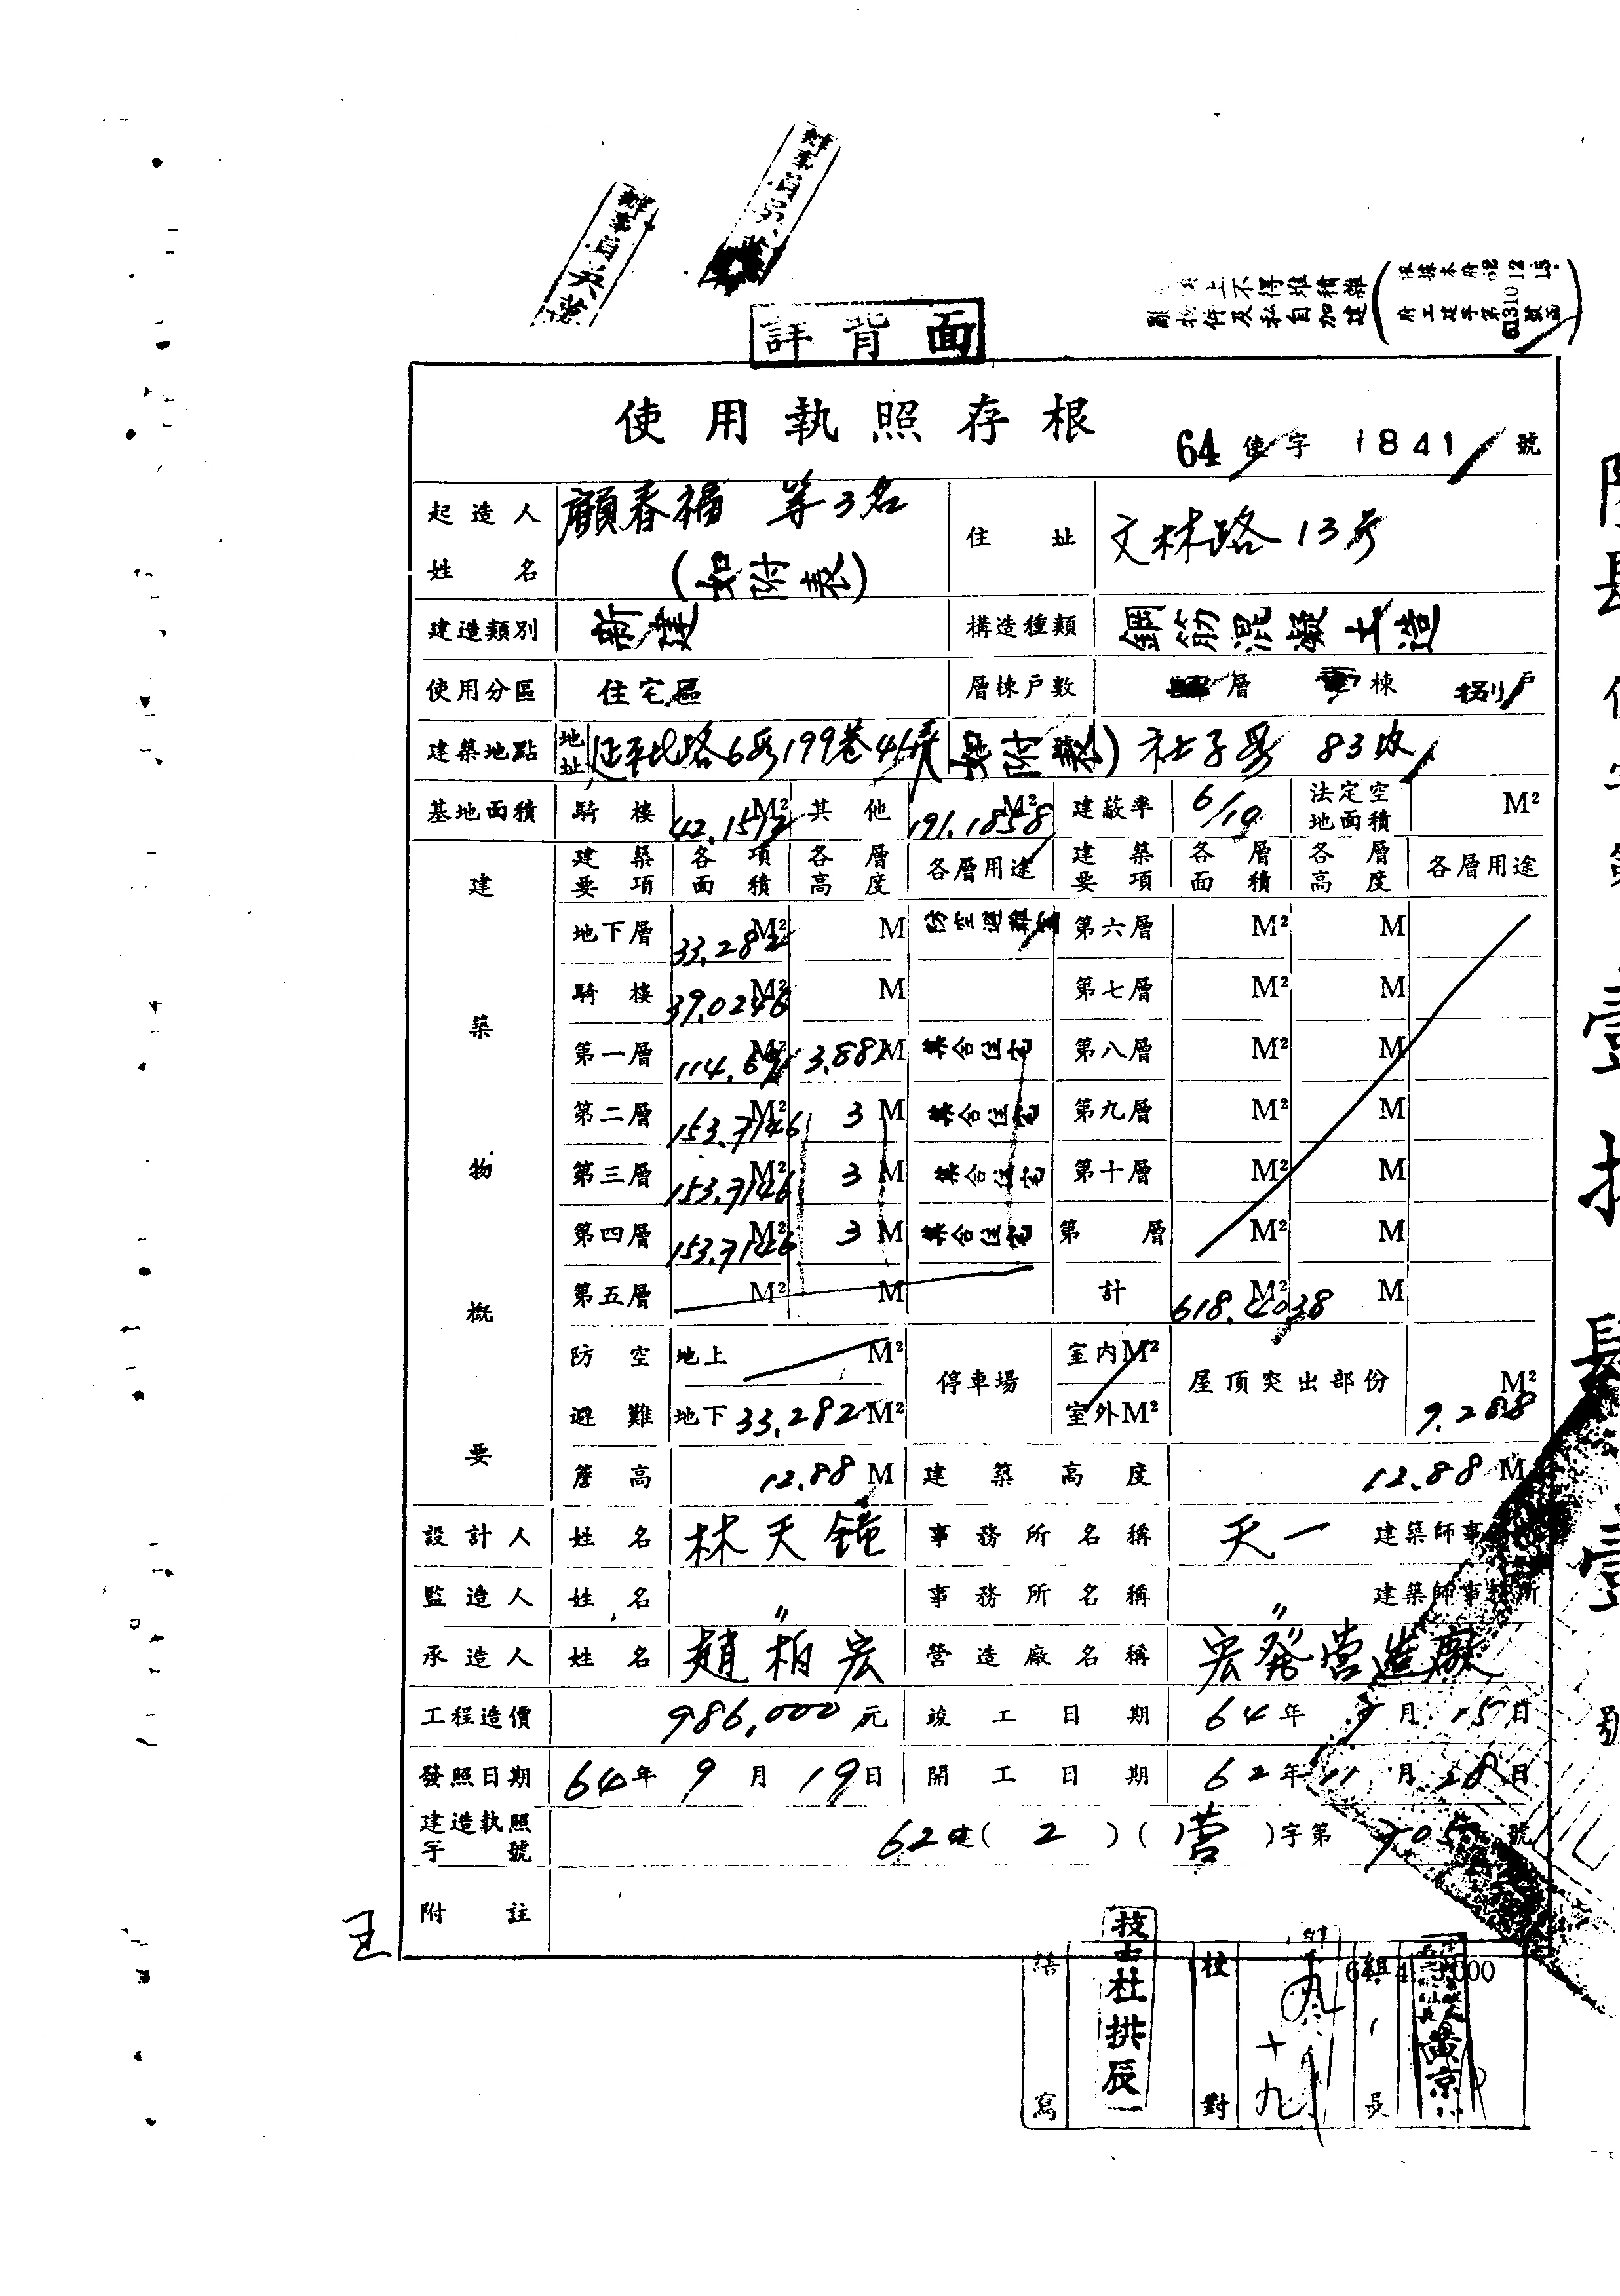 詳背面
使用執照存根
64 使字 1841 號
起造人姓名 顧春福 等3名 (如附表) 住址 文林路13号
建造類別 新建 構造種類 鋼筋混凝土造
使用分區 住宅區 層棟戶數 層 棟 捌戶
建築地點 地址 延平北路6段199巷4弄 (如附表) 社子段 83
基地面積 騎樓 M² 其他 191.1858 M² 建蔽率 6/10 法定空地面積 M²
建築物概要
建築要項 各項面積 各層高度 各層用途 建築要項 各層面積 各層高度 各層用途
地下層 33.282 M² M 防空避難室 第六層 M² M
騎樓 39.0246 M² M 第七層 M² M
第一層 M² 3.88 M 集合住宅 第八層 M² M
第二層 153.7146 M² 3 M 集合住宅 第九層 M² M
第三層 153.7146 M² 3 M 集合住宅 第十層 M² M
第四層 153.7146 M² 3 M 集合住宅 第 層 M² M
第五層 M² M 計 618.4038 M² M
防空避難 地上 M² 停車場 室內M² 屋頂突出部份 9.288 M²
地下 33.282 M² 室外M²
簷高 12.88 M 建築高度 12.88 M
設計人 姓名 林天 事務所名稱 天一 建築師事
監造人 姓名 〃 事務所名稱 〃 建築師事務所
承造人 姓名 趙柏宏 營造廠名稱 宏發営造廠
工程造價 986,000 元 竣工日期 64年 月 15日
發照日期 64年 9月 19日 開工日期 62年 11月 28日
建造執照字號 62建( 2 )( 営 )字第 號
附註
繕寫 技士杜拱辰 校對 組長 黃京